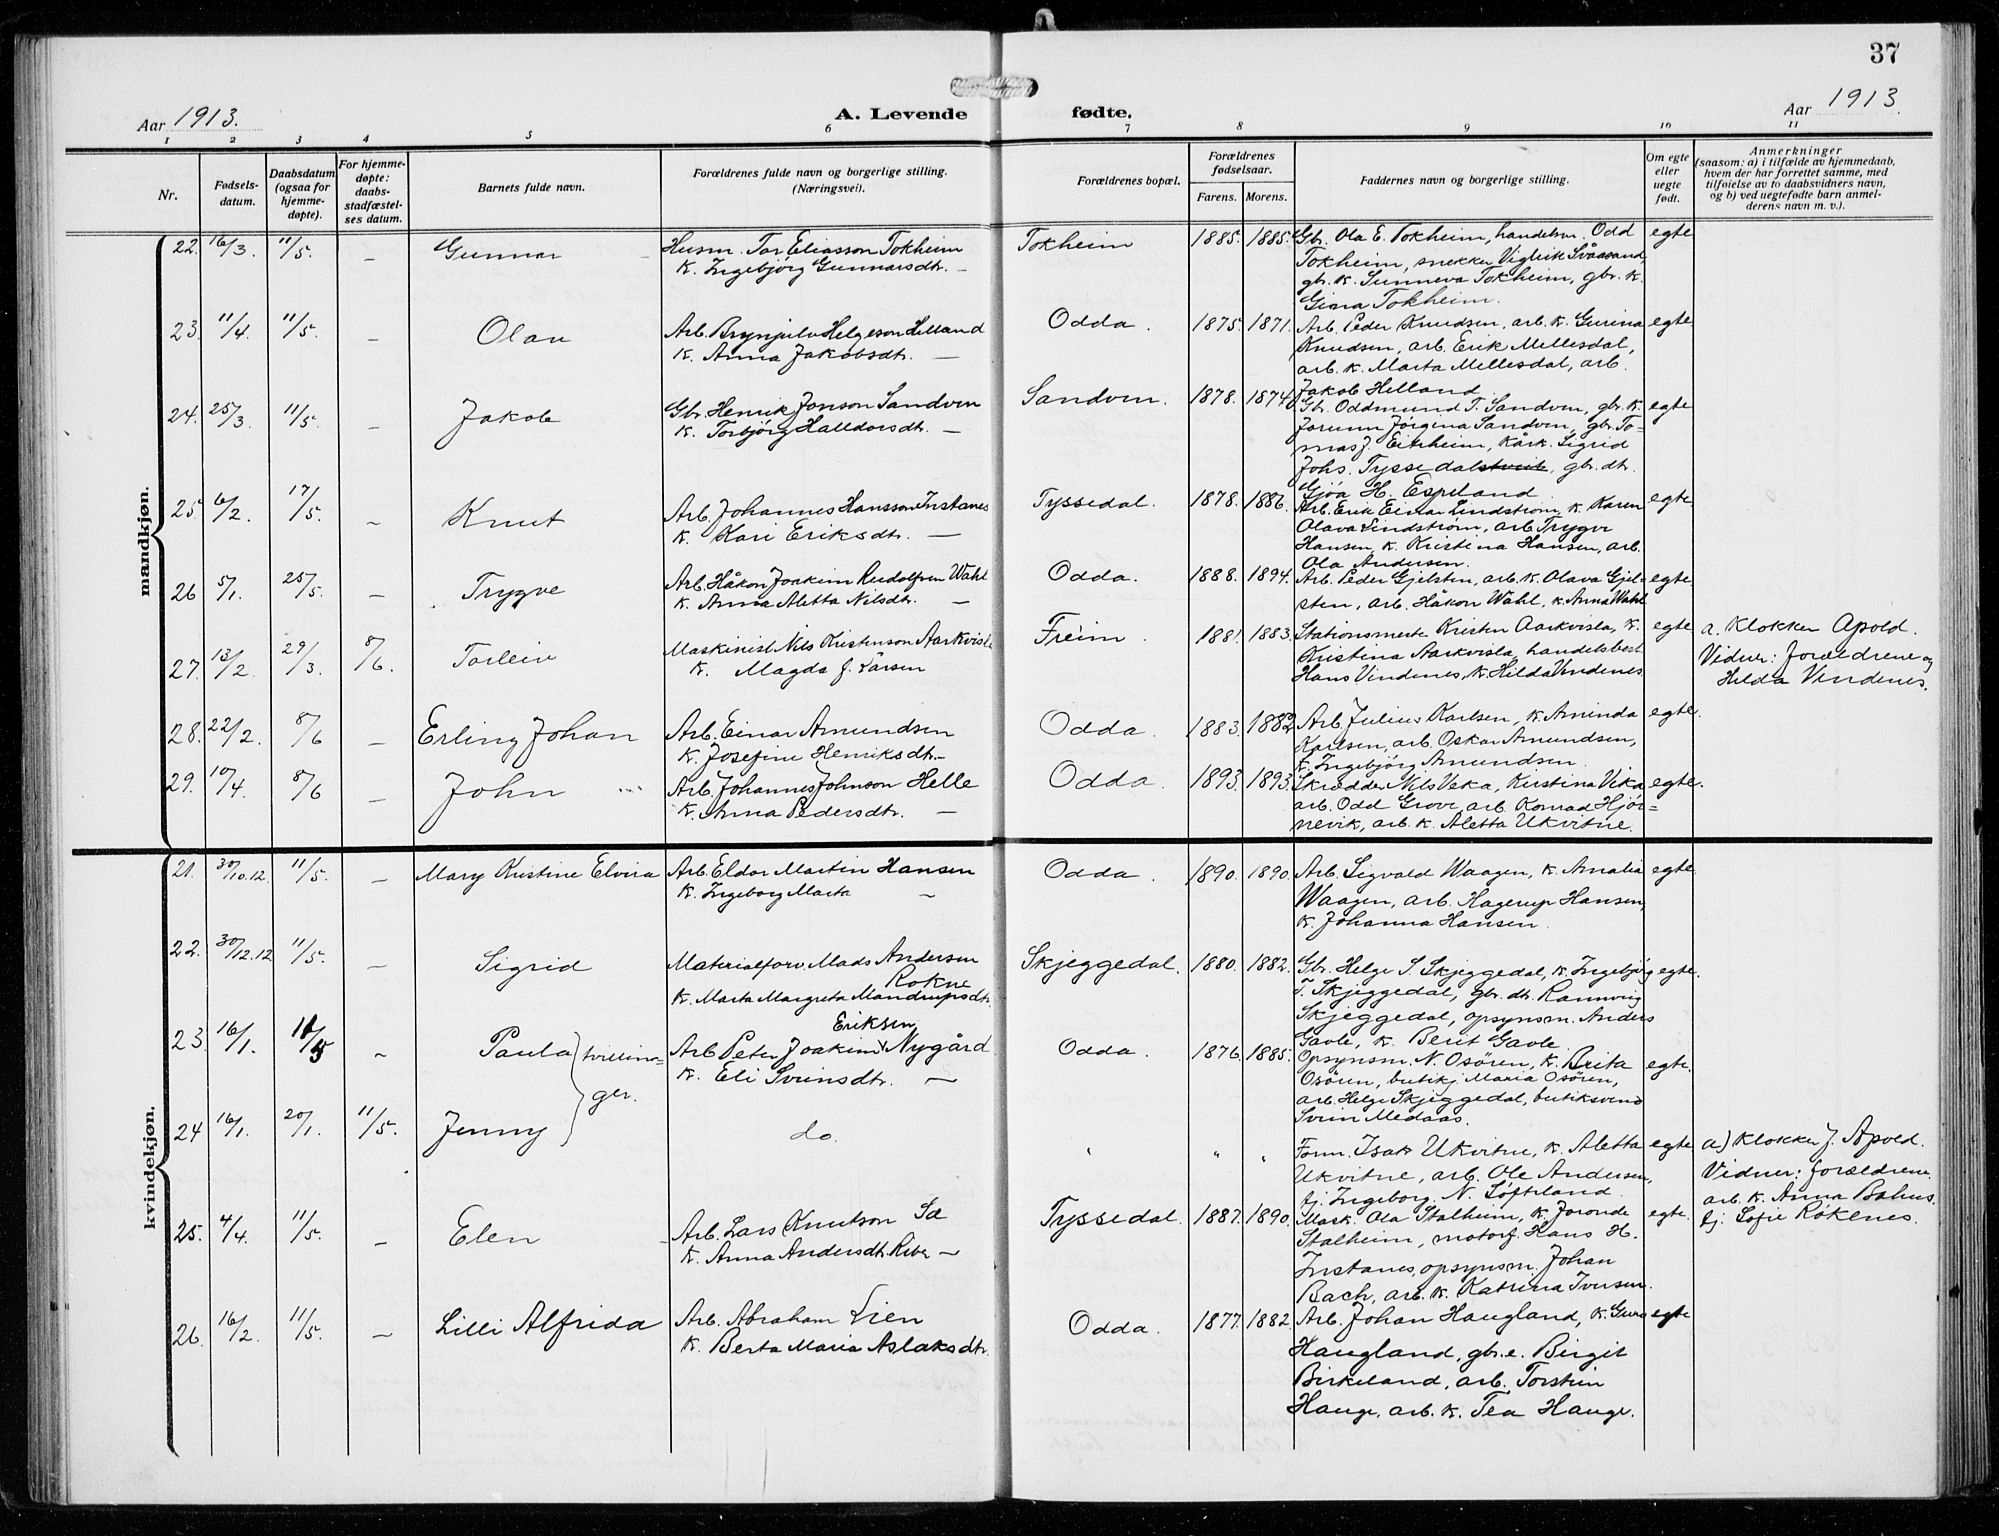 37
Aar 1913.
A. Levende fødte.
Aar 1913
1 2 3 4 5 6 7 8 9 10 11
Nr.
Fødsels-
datum.
Daabsdatum
(ogsaa for
hjemme-
døpte).
For hjemme-
døpte:
daabs-
stadfæstel-
ses datum.
Barnets fulde navn.
Forældrenes fulde navn og borgerlige stilling.
(Næringsvei).
Forældrenes bopæl.
Forældrenes
fødselsaar.
Farens. Morens.
Faddernes navn og borgerlige stilling.
Om egte
eller
uegte
født.
Anmerkninger
(saasom: a) i tilfælde av hjemmedaab,
hvem der har forrettet samme, med
tilføielse av to daabsvidners navn,
og b) ved uegtefødte barn anmel-
derens navn m. v.).
mandkjøn.
22. 16/3. 11/5. – Gunnar
Husm. Tor Eliasson Tokheim
K. Ingebjørg Gunnarsdtr. –
Tokheim 1885. 1885.
Gbr. Ola E. Tokheim, handelsm. Odd
Tokheim, snekker Viglik Svåasand,
gbr. k. Sunneva Tokheim, gbr. k.
Gina Tokheim.
egte
23. 11/4. 11/5. – Olav
Arb. Brynjulv Helgeson Helland
K. Anna Jakobsdtr. –
Odda. 1875. 1871.
Arb. Peder Knudsen, arb. k. Gurina
Knudsen, arb. Erik Mellesdal,
arb. k. Marta Mellesdal, arb.
Jakob Helland.
egte
24. 25/3. 11/5. – Jakob
Gbr. Henrik Jonson Sandven
K. Torbjørg Halldorsdtr. –
Sandven. 1878. 1874.
Gbr. Oddmund T. Sandven, gbr. k.
Jorunn Jørgina Sandven, gbr. To-
mas J. Eitrheim, Kårk. Sigrid
Johs. Tyssedal, gbr. dtr.
Gjøa H. Espeland
egte
25. 6/2. 17/5. – Knut
Arb. Johannes Hansson Instanes
K. Kari Eriksdtr. –
Tyssedal. 1878. 1886.
Arb. Erik Einar Lindstrøm, K. Karen
Olava Lindstrøm, arb. Trygve
Hansen, K. Kristina Hansen, arb.
Ola Andersen.
egte
26 5/1. 25/5. – Trygve
Arb. Håkon Joakim Rudolfsen Wahl
K. Anna Aletta Nilsdtr. –
Odda. 1888. 1894.
Arb. Peder Gjelsten, arb. K. Olava Gjel-
sten, arb. Håkon Wahl, K. Anna Wahl
egte
27. 13/2. 29/3. 8/6. Torleiv
Maskinist Nils Kristenson Aarkvisla
K. Magda f. Larsen
Freim. 1881. 1883.
Stationsmester Kristen Aarkvisla, K.
Kristina Aarkvisla, handelsbest.
Hans Vindenes, K. Hilda Vindenes
egte
a. Klokker Apold.
Vidner: Forældrene og
Hilda Vindenes.
28. 22/2. 8/6 – Erling Johan
Arb. Einar Amundsen
K. Josefine Henriksdtr. –
Odda. 1883. 1882
Arb. Julius Karlsen, K. Aminda
Karlsen, arb. Oskar Amundsen,
K. Ingebjørg Amundsen.
egte.
29. 10/4 8/6 – John
Arb. Johannes Johnson Helle
K. Anna Pedersdtr. –
Odda. 1893. 1893.
Skrædder Nils Veka, Kristina Vika
arb. Odd Grove, arb. Konrad Hjør-
nevik, arb. K. Aletta Ukvitne.
egte.
kvindekjøn.
21. 30/10.12. 11/5. – Mary Kristine Elvira
Arb. Eldor Martin Hansen
K. Ingeborg Marta –
Odda. 1890. 1890.
Arb. Sigvald Waagen, K. Amalia
Waagen, arb. Hagerup Hansen,
K. Johanna Hansen.
egte
22. 30/12.12 11/5. – Sigrid
Materialforv. Mads Andersen
Rokne
K. Marta Margreta Mandrupsdtr.
Skjeggedal. 1880. 1882.
Gbr. Helge S. Skjeggedal, K. Ingebjørg
T. Skjeggedal, gbr. dtr. Rannveig
Skjeggedal, opsynsm. Anders
Gavle, K. Berit Gavle.
egte.
23. 16/1. 11/5 – Paula } tvillin-
Eriksen
Arb. Peter Joakim Nygård
K. Eli Sveinsdtr. –
Odda. 1876. 1885.
Opsynsm. N. Osøren, K. Brita
Osøren, butikj. Maria Osøren,
arb. Helge Skjeggedal, butiksvend
Svein Medaas.
egte.
24 16/1. 20/1. 11/5. Jenny } ger.
do.
" " "
Form. Isak Ukvitne, K. Aletta
Ukvitne, arb. Ole Andersen,
tj. Ingeborg N. Løfteland
egte
a) Klokker J. Apold.
Vidner: forældrene.
arb. K. Anna Bahus.
tj. Sofie Røkenes.
25. 4/4. 11/5. – Elen
Arb. Lars Knutson Sæ
K. Anna Andersdtr. Riber –
Tyssedal. 1887. 1890.
Mask. Ola Stalheim, K. Joronde
Stalheim, motorf. Hans H.
Instanes, opsynsm. Johan
Bach, arb. K. Katrina Iversen.
egte.
26. 16/2. 11/5. – Lilli Alfrida
Arb. Abraham Lien
K. Berta Maria Aslaksdtr.
Odda. 1877. 1882.
Arb. Johan Haugland, K. Guro
Haugland, gbr. e. Birgit
Birkeland, arb. Torstein
Hauge, arb. K. Tea Hauge.
egte